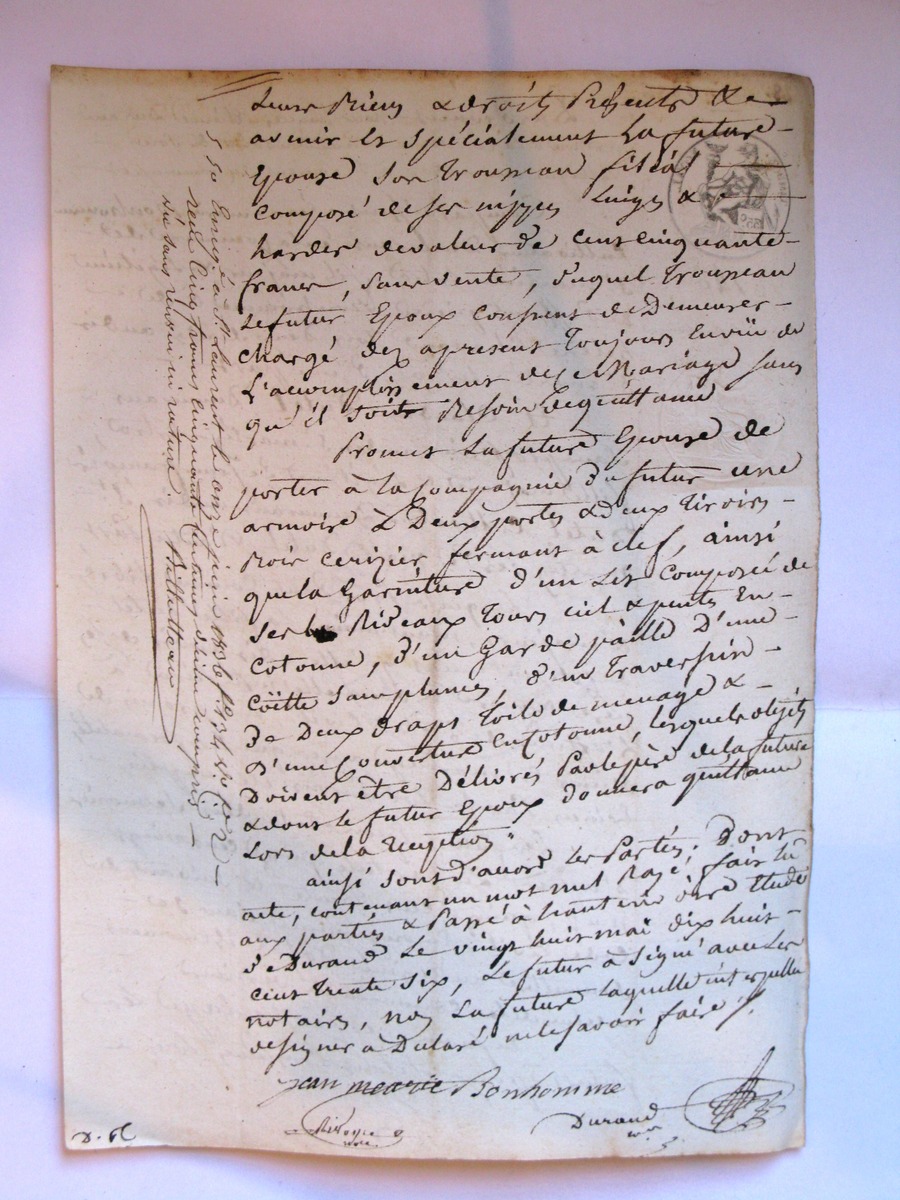 Leurs Biens & droits Présents & a
avenir et spécialement la future
Epouse son trousseau filial
composé de ses nippes linges &
hardes de valeur de cent cinquante
francs, sans vente, duquel trousseau
le futur Epoux consent de Demeurer
chargé dez apresent toujours En vüe de
L'accomplissement de ce Mariage sans
qu'il soit Besoin de quittance
Promet La future Epouse de
porter à la Compagnie du futur une
armoire à Deux portes & deux tiroirs
Bois cerizier fermant à clef, ainsi
que la Garniture d'un Lit Composée de
ses Rideaux tours ciel & pentes En
cotonne, d'un Garde paille D'une
Coëtte sans plumes, d'un traversin
De Deux draps toile de menage &
D'une Couverture en Cotonne, lesquels objets
Doivent être Délivrés Par le père de la future
& dont le futur Epoux donnera quittance
Lors de la reception
ainsi sont d'accord les Parties. Dont
acte, contenant un mot nul Rayé, fait lu
aux parties & Passé à hauterivoire Etude
de Durand Le vingt huit maï dix huit
cent trente Six, Le futur à Signé avec Les
notaires, non La future laquelle interpellée
de signer a Declaré ne le savoir faire
jean marie Bonhomme
Durand
Enregé à St Laurent le onze juin 1836 fo 134
reçu cinq francs cinquante centimes décime compris